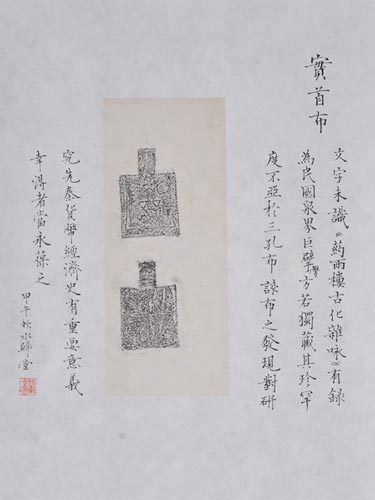 實首布
文字未識《葯雨樓古化雜咏》有録
為民國泉界巨擘方若獨藏其珍罕
度不亞於三孔布 該布之發現對研
究先秦貨幣經濟史有重要意義
幸得者當永葆之
甲午秋